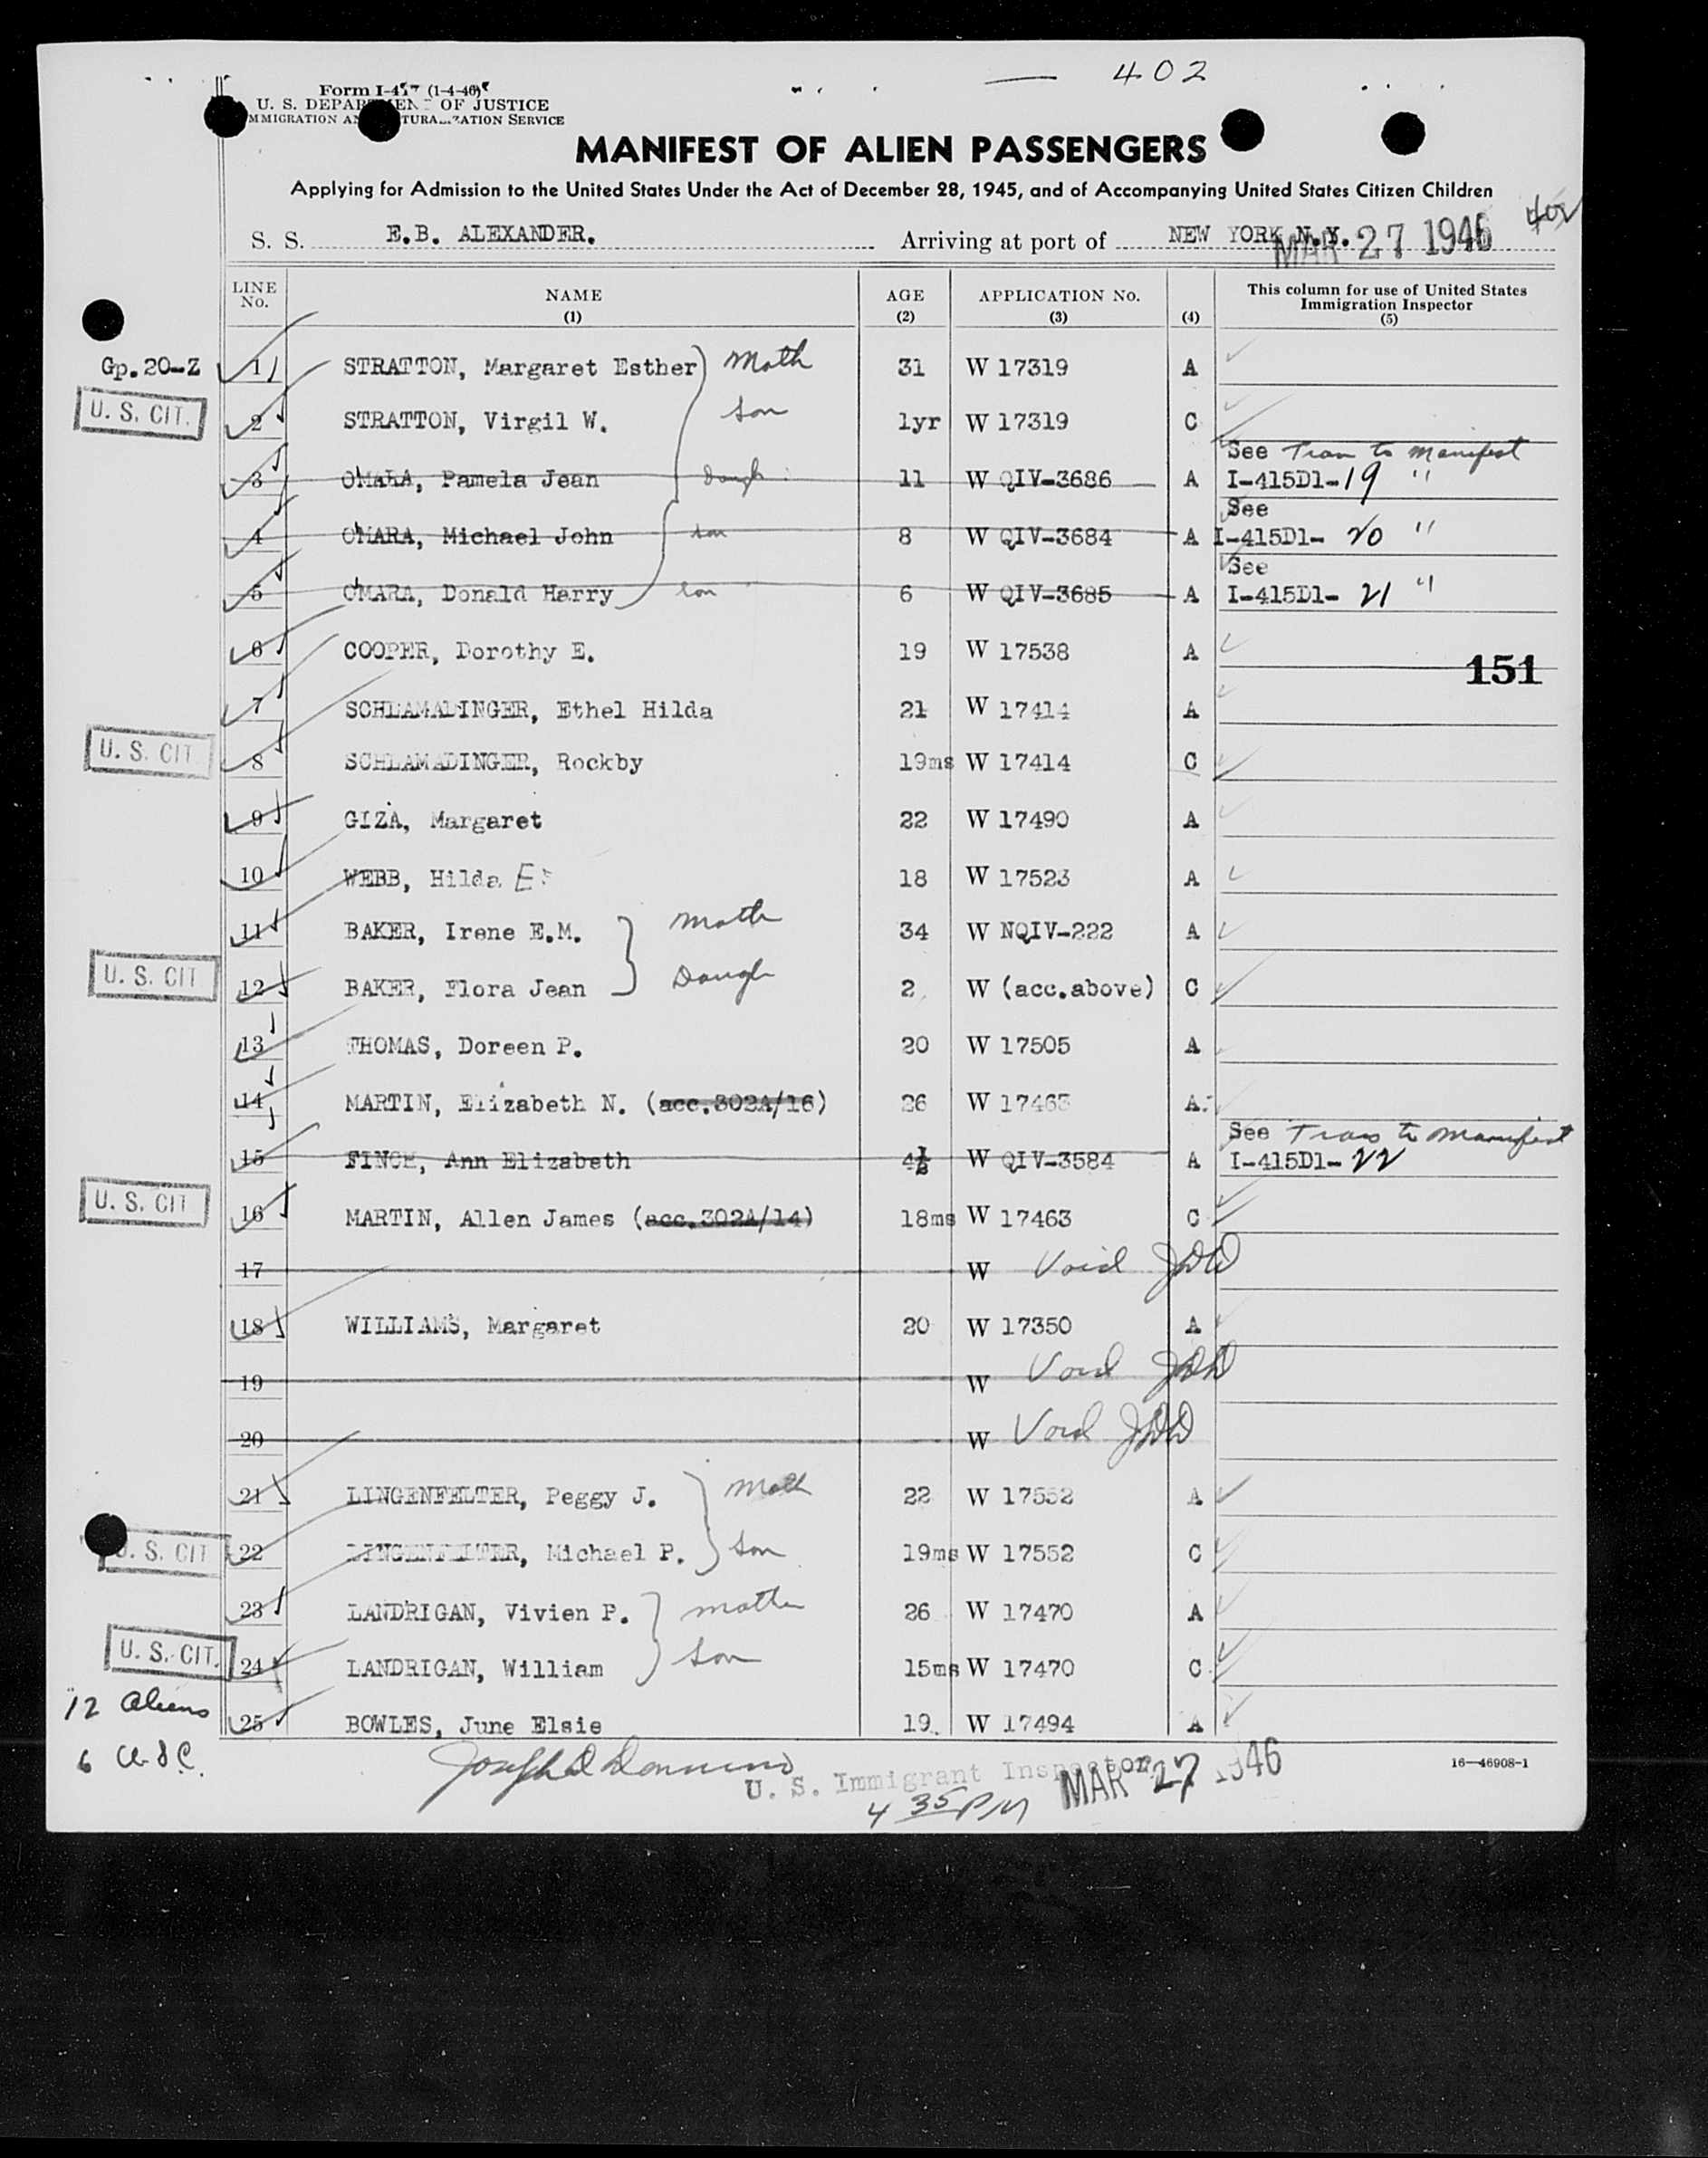 402
Form I-417 (1-4-46)
U. S. DEPARTMENT OF JUSTICE
IMMIGRATION AND NATURALIZATION SERVICE
MANIFEST OF ALIEN PASSENGERS
Applying for Admission to the United States Under the Act of December 28, 1945, and of Accompanying United States Citizen Children
402
S. S. E.B. ALEXANDER. Arriving at port of NEW YORK N.Y. MAR 27 1946
LINE No. NAME (1) AGE (2) APPLICATION No. (3) (4) This column for use of United States Immigration Inspector (5)
Gp.20-Z 1 STRATTON, Margaret Esther Moth 31 W 17319 A
U. S. CIT. 2 STRATTON, Virgil W. son 1yr W 17319 C
See Tran to Manifest
3 O'MARA, Pamela Jean Daugh 11 W QIV-3686 A I-415D1-19 "
See
4 O'MARA, Michael John son 8 W QIV-3684 A I-415D1- 20 "
See
5 O'MARA, Donald Harry son 6 W QIV-3685 A I-415D1- 21 "
6 COOPER, Dorothy E. 19 W 17538 A
151
7 SCHLAMADINGER, Ethel Hilda 21 W 17414 A
U. S. CIT 8 SCHLAMADINGER, Rockby 19ms W 17414 C
9 GIZA, Margaret 22 W 17490 A
10 WEBB, Hilda E 18 W 17523 A
11 BAKER, Irene E.M. Moth 34 W NQIV-222 A
U. S. CIT 12 BAKER, Flora Jean Daugh 2 W (acc.above) C
13 THOMAS, Doreen P. 20 W 17505 A
14 MARTIN, Elizabeth N. (acc.302A/16) 26 W 17463 A
See Trans to Manifest
15 FINCH, Ann Elizabeth 4½ W QIV-3584 A I-415D1-22
U. S. CIT 16 MARTIN, Allen James (acc.302A/14) 18ms W 17463 C
17 W Void
18 WILLIAMS, Margaret 20 W 17350 A
19 W Void
20 W Void
21 LINGENFELTER, Peggy J. Moth 22 W 17552 A
U. S. CIT 22 LINGENFELTER, Michael P. son 19ms W 17552 C
23 LANDRIGAN, Vivien P. mother 26 W 17470 A
U. S. CIT. 24 LANDRIGAN, William son 15ms W 17470 C
12 aliens
25 BOWLES, June Elsie 19 W 17494 A
6 U.S.C.
U. S. Immigrant Inspector MAR 27 1946
16—46908-1
4 35 PM